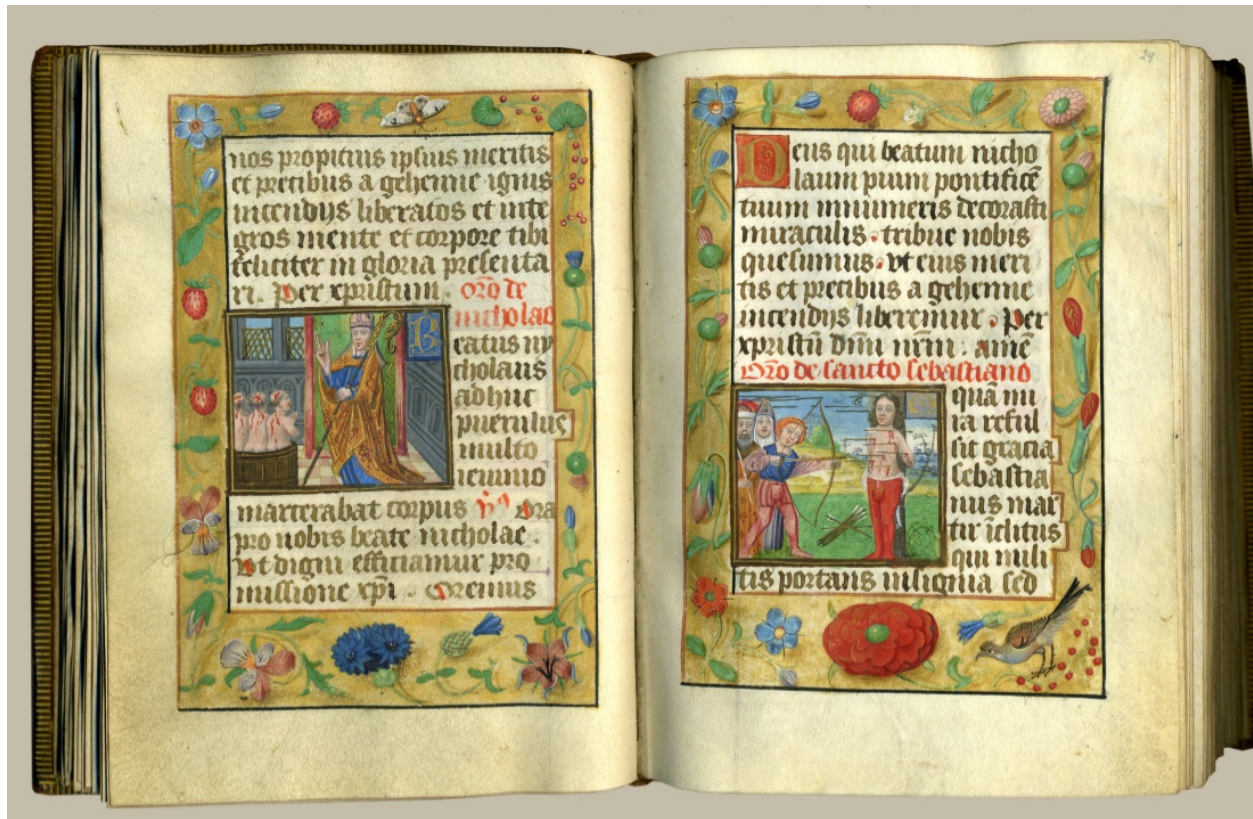 nos propitius ipsius meritis
et precibus a gehenne ignis
incendijs liberatos et inte
gros mente et corpore tibi
feliciter in gloria presenta
ri. Per xpristum. Orõ de
nicholao
Beatus ny
cholaus
adhuc
puerulus
multo
ieiunio
marcerabat corpus Ora
pro nobis beate nicholae.
Vt digni efficiamur pro
missione xpi. Oremus
24
Deus qui beatum nicho
laum pium pontificẽ
tuum innumeris decorasti
miraculis. tribue nobis
quesumus. vt eius meri
tis et precibus a gehenne
incendijs liberemur. Per
xpristũ dñm nrm. amẽ
Orõ de sancto sebastiano
quã mi
ra reful
sit gracia
sebastia
nus mar
tir ĩclitus
qui mili
tis portans insignia sed